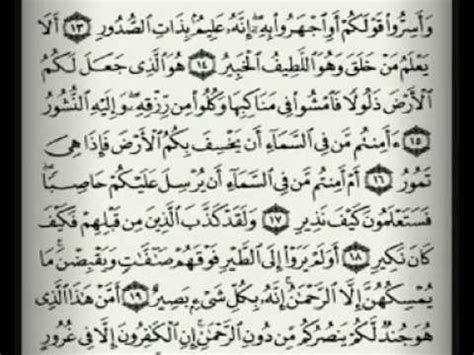 وَأَسِرُّوا۟ قَوْلَكُمْ أَوِ ٱجْهَرُوا۟ بِهِۦٓ إِنَّهُۥ عَلِيمٌۢ بِذَاتِ ٱلصُّدُورِ ۝١٣ أَلَا
يَعْلَمُ مَنْ خَلَقَ وَهُوَ ٱللَّطِيفُ ٱلْخَبِيرُ ۝١٤ هُوَ ٱلَّذِى جَعَلَ لَكُمُ
ٱلْأَرْضَ ذَلُولًا فَٱمْشُوا۟ فِى مَنَاكِبِهَا وَكُلُوا۟ مِن رِّزْقِهِۦ وَإِلَيْهِ ٱلنُّشُورُ
۝١٥ ءَأَمِنتُم مَّن فِى ٱلسَّمَآءِ أَن يَخْسِفَ بِكُمُ ٱلْأَرْضَ فَإِذَا هِىَ
تَمُورُ ۝١٦ أَمْ أَمِنتُم مَّن فِى ٱلسَّمَآءِ أَن يُرْسِلَ عَلَيْكُمْ حَاصِبًا
فَسَتَعْلَمُونَ كَيْفَ نَذِيرِ ۝١٧ وَلَقَدْ كَذَّبَ ٱلَّذِينَ مِن قَبْلِهِمْ فَكَيْفَ
كَانَ نَكِيرِ ۝١٨ أَوَلَمْ يَرَوْا۟ إِلَى ٱلطَّيْرِ فَوْقَهُمْ صَٰٓفَّٰتٍ وَيَقْبِضْنَ مَا
يُمْسِكُهُنَّ إِلَّا ٱلرَّحْمَٰنُ إِنَّهُۥ بِكُلِّ شَىْءٍۭ بَصِيرٌ ۝١٩ أَمَّنْ هَٰذَا ٱلَّذِى
هُوَ جُندٌ لَّكُمْ يَنصُرُكُم مِّن دُونِ ٱلرَّحْمَٰنِ إِنِ ٱلْكَٰفِرُونَ إِلَّا فِى غُرُورٍ